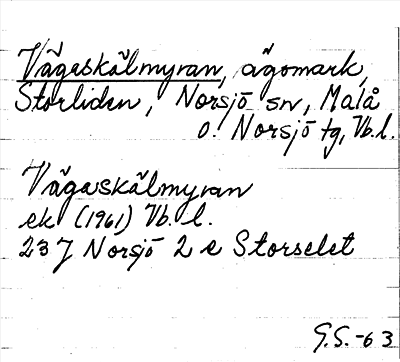 Vägaskälmyran, ägomark,
Storliden, Norsjö sn, Malå
o. Norsjö tg, Vb.l.
Vägaskälmyran
ek (1961) Vb. l.
23 J Norsjö 2 e Storselet
G.S. -63